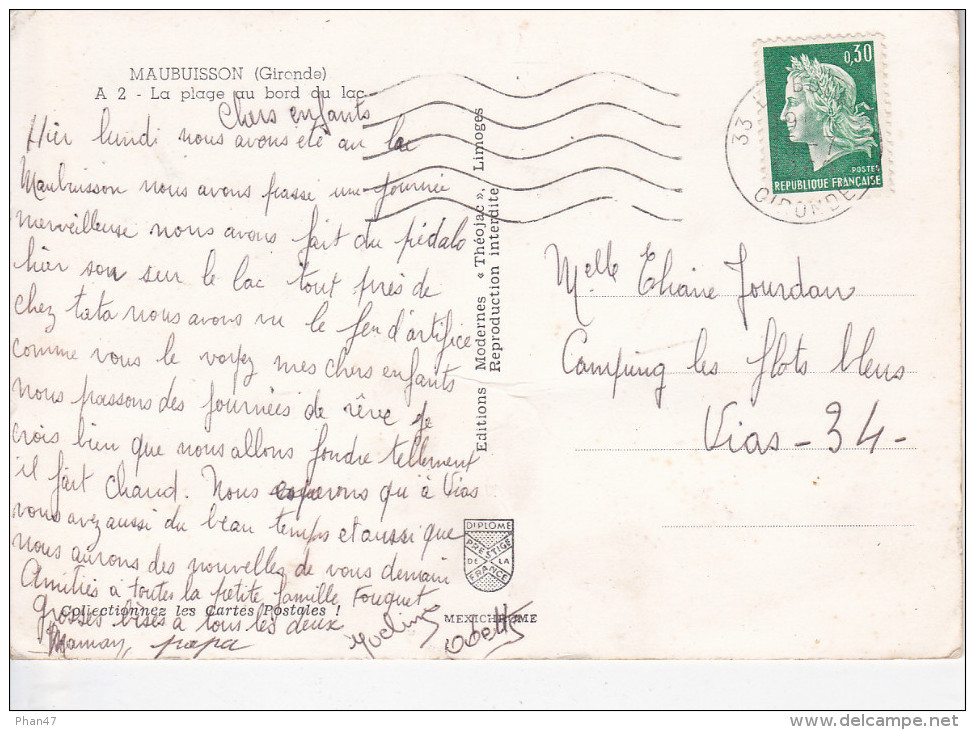 MAUBUISSON (Gironde)
A 2 - La plage au bord du lac
Chers enfants
Hier lundi nous avons été au lac
Maubuisson nous avons passé une journée
merveilleuse nous avons fait du pédalo
hier soir sur le lac tout près de
chez tata nous avons vu le feu d'artifice
comme vous le voyez mes chers enfants
nous passons des journées de rêve je
crois bien que nous allons fondre tellement
il fait chaud. Nous esperons qu'à Vias
vous avez aussi du beau temps et aussi que
nous aurons des nouvelles de vous demain
Amitiés à toutes la petite famille Fouquet
Grosses bises à tous les deux
Maman, papa
Collectionnez les Cartes Postales !
Editions Modernes « Théojac », Limoges
Reproduction interdite
DIPLOME
PRESTIGE
DE LA
FRANCE
MEXICHROME
0,30
POSTES
REPUBLIQUE FRANÇAISE
33
GIRONDE
Melle Eliane Jourdan
Camping les flots bleus
Vias - 34 -
Phan47
www.delcampe.net